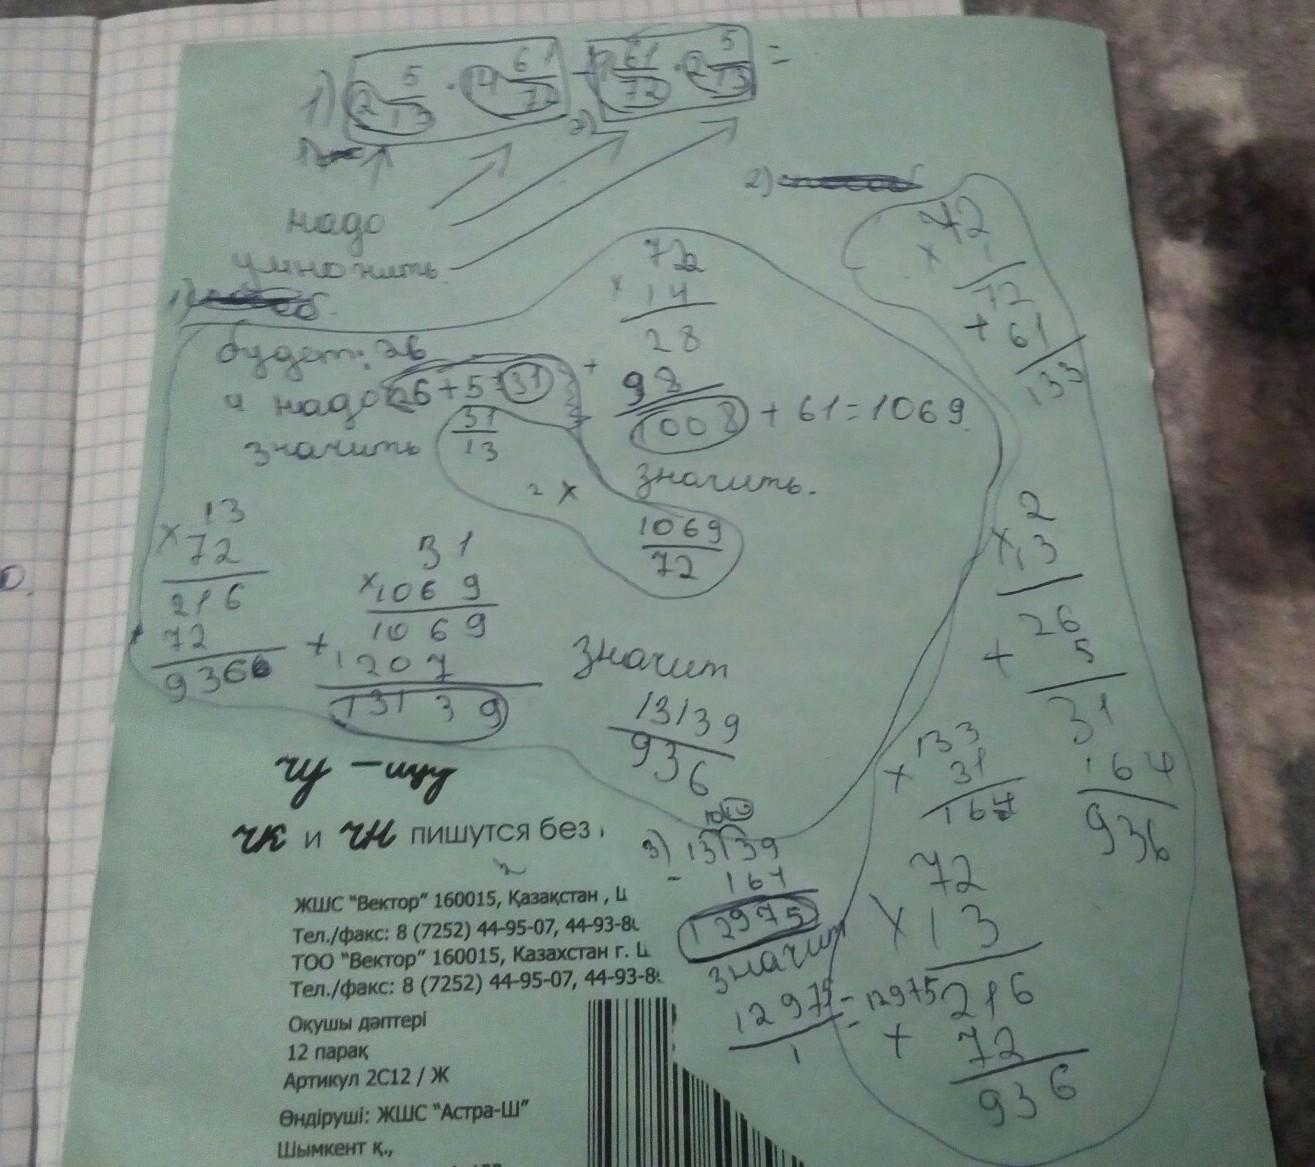 1) 2 5/13 · 14 61/72 - 1 61/72 · 2 5/13 =
2)
надо
умножить
2)
1)
72
× 1
72
+ 61
133
будет: 26
и надо 26+5=31
значить 31/13
72
× 14
28
+
98
1008 + 61 = 1069
значить.
× 1069/72
13
× 72
216
72
936
31
× 1069
1069
+ 1207
13139
значит
13139/936
2
× 13
26
+ 5
31
133
× 31
164
164/936
72
× 13
216
+ 72
936
3) 13139
- 164
12975
значит
12975/1 = 12975
чу – щу
чк и чн пишутся без
ЖШС "Вектор" 160015, Қазақстан , Ш
Тел./факс: 8 (7252) 44-95-07, 44-93-8
ТОО "Вектор" 160015, Казахстан г. Ш
Тел./факс: 8 (7252) 44-95-07, 44-93-8
Оқушы дәптері
12 парақ
Артикул 2С12 / Ж
Өндіруші: ЖШС "Астра-Ш"
Шымкент қ.,